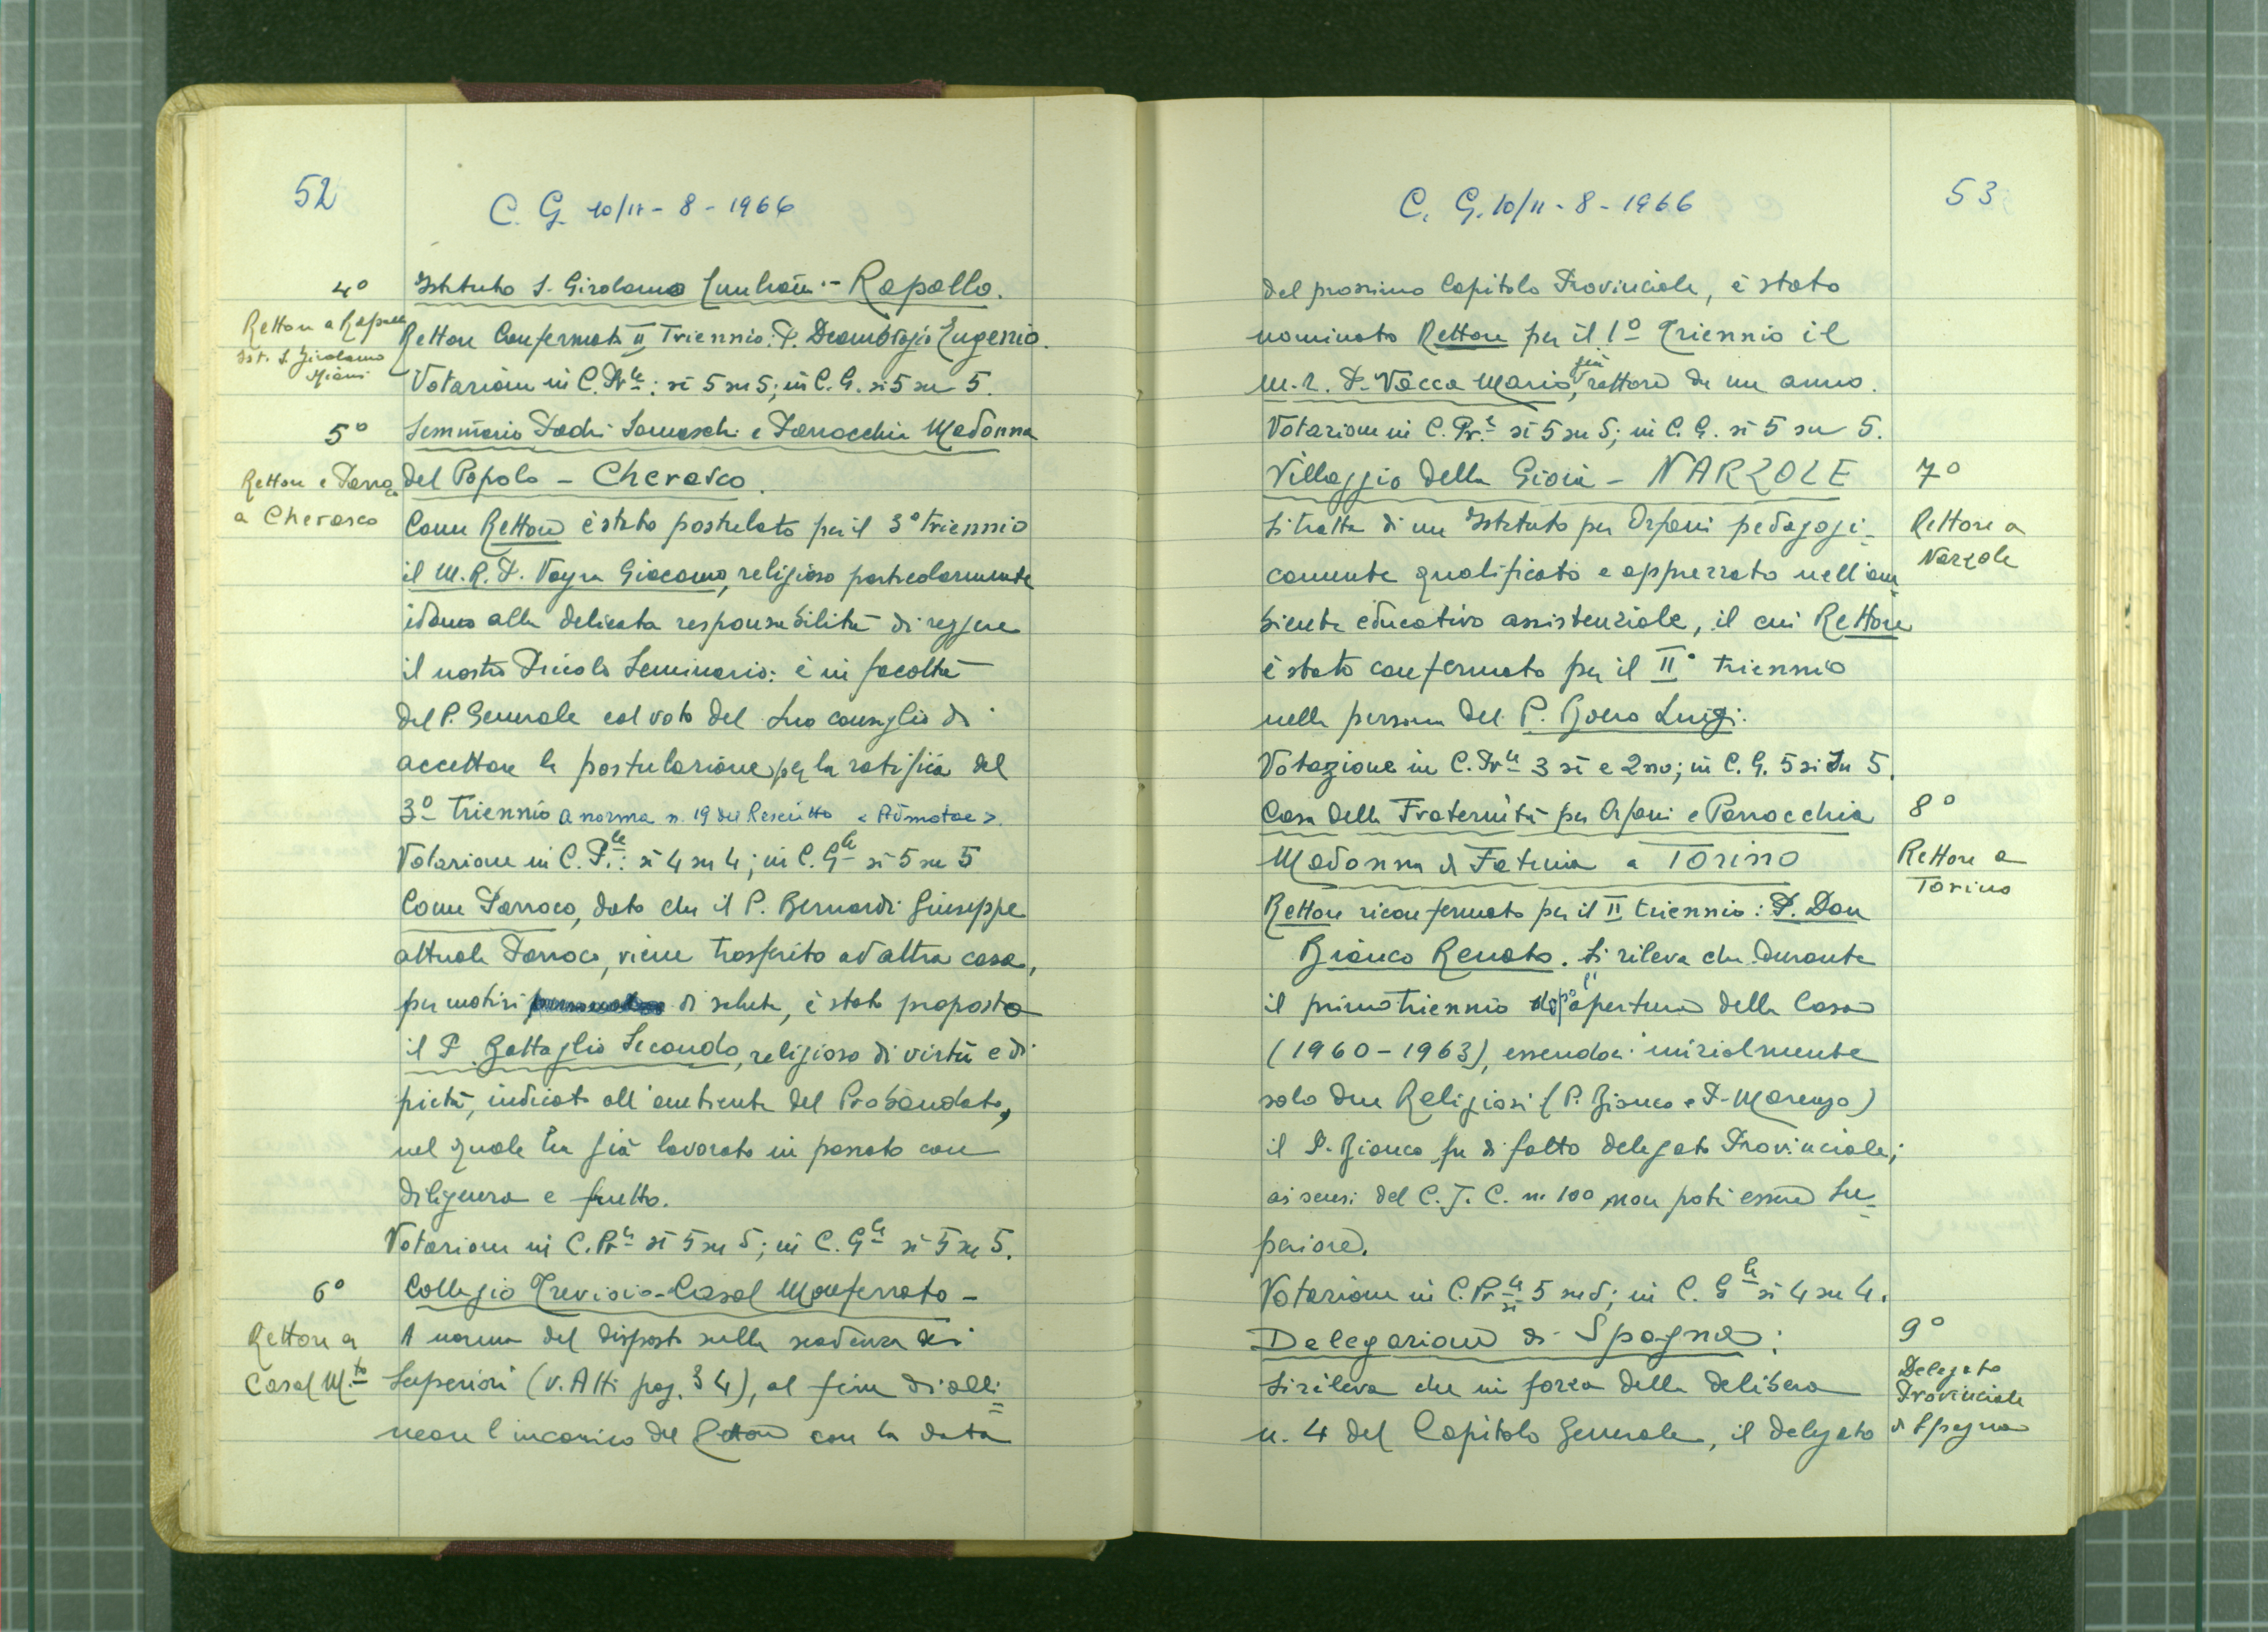 52
C. G. 10/11 - 8 - 1966
4°
Istituto S. Girolamo Emiliani - Rapallo.
Rettore a Rapallo
Ist. S. Girolamo
Miani
Rettore Confermato II Triennio: P. Deambrogio Eugenio.
Votazione in C. Prle: sì 5 su 5; in C. G. sì 5 su 5.
5°
Seminario Padri Somaschi e Parrocchia Madonna
del Popolo - Cherasco.
Rettore e Parroco
a Cherasco
Come Rettore è stato postulato per il 3° triennio
il M. R. P. Vayra Giacomo, religioso particolarmente
idoneo alla delicata responsabilità di reggere
il nostro Piccolo Seminario: è in facoltà
del P. Generale col voto del suo consiglio di
accettare la postulazione per la ratifica del
3° triennio a norma n. 19 del Rescritto « Admotae ».
Votazione in C. P.le: sì 4 su 4; in C. Gle sì 5 su 5
Come Parroco, dato che il P. Bernardi Giuseppe
attuale Parroco, viene trasferito ad altra casa,
per motivi di salute, è stato proposto
il P. Battaglio Secondo, religioso di virtù e di
pietà, indicato all'ambiente del Probandato,
nel quale ha già lavorato in passato con
diligenza e frutto.
Votazione in C. Prle sì 5 su 5; in C. Gle sì 5 su 5.
6°
Collegio Trevisio - Casal Monferrato -
Rettore a
Casal M.to
A norma del disposto sulla scadenza dei
Superiori (v. Atti pag. 34), al fine di alli=
neare l'incarico del Rettore con la data
C. G. 10/11 - 8 - 1966
53
del prossimo Capitolo Provinciale, è stato
nominato Rettore per il 1° Triennio il
M. R. P. Vacca Mario, già rettore da un anno.
Votazione in C. Pr.le sì 5 su 5; in C. G. sì 5 su 5.
Villaggio della Gioia - NARZOLE
7°
Rettore a
Narzole
Si tratta di un Istituto per Orfani pedagogi-
camente qualificato e apprezzato nell'am-
biente educativo assistenziale, il cui Rettore
è stato confermato per il II° triennio
nella persona del P. Boero Luigi.
Votazione in C. Prle 3 sì e 2 no; in C. G. 5 sì su 5.
Casa della Fraternità per Orfani e Parrocchia
Madonna di Fatima a TORINO
8°
Rettore a
Torino
Rettore riconfermato per il II triennio: P. Don
Bianco Renato. Si rileva che durante
il primo triennio dopo l'apertura della Casa
(1960-1963), essendoci inizialmente
solo due Religiosi (P. Bianco e P. Marengo)
il P. Bianco fu di fatto delegato Provinciale;
ai sensi del C. J. C. n. 100 non poté essere Su-
periore.
Votazione in C. Prle sì 5 su 5; in C. Gle sì 4 su 4.
Delegazione di Spagna:
9°
Delegato
Provinciale
di Spagna
Si rileva che in forza della delibera
n. 4 del Capitolo Generale, il delegato